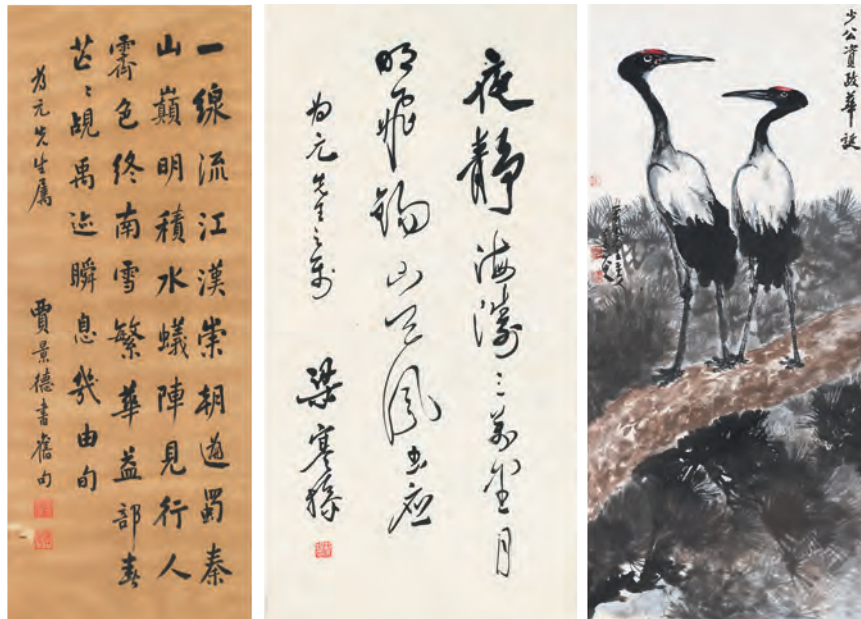 一線流江漢崇朝遍蜀秦
山巔明積水蟻陣見行人
霽色終南雪繁華益部春
芒〻覘禹迹瞬息幾由旬
為元先生属
賈景德書舊句
夜靜海濤三萬里月
明飛錫下天風書應
為元先生之屬
梁寒操
少公資政華誕